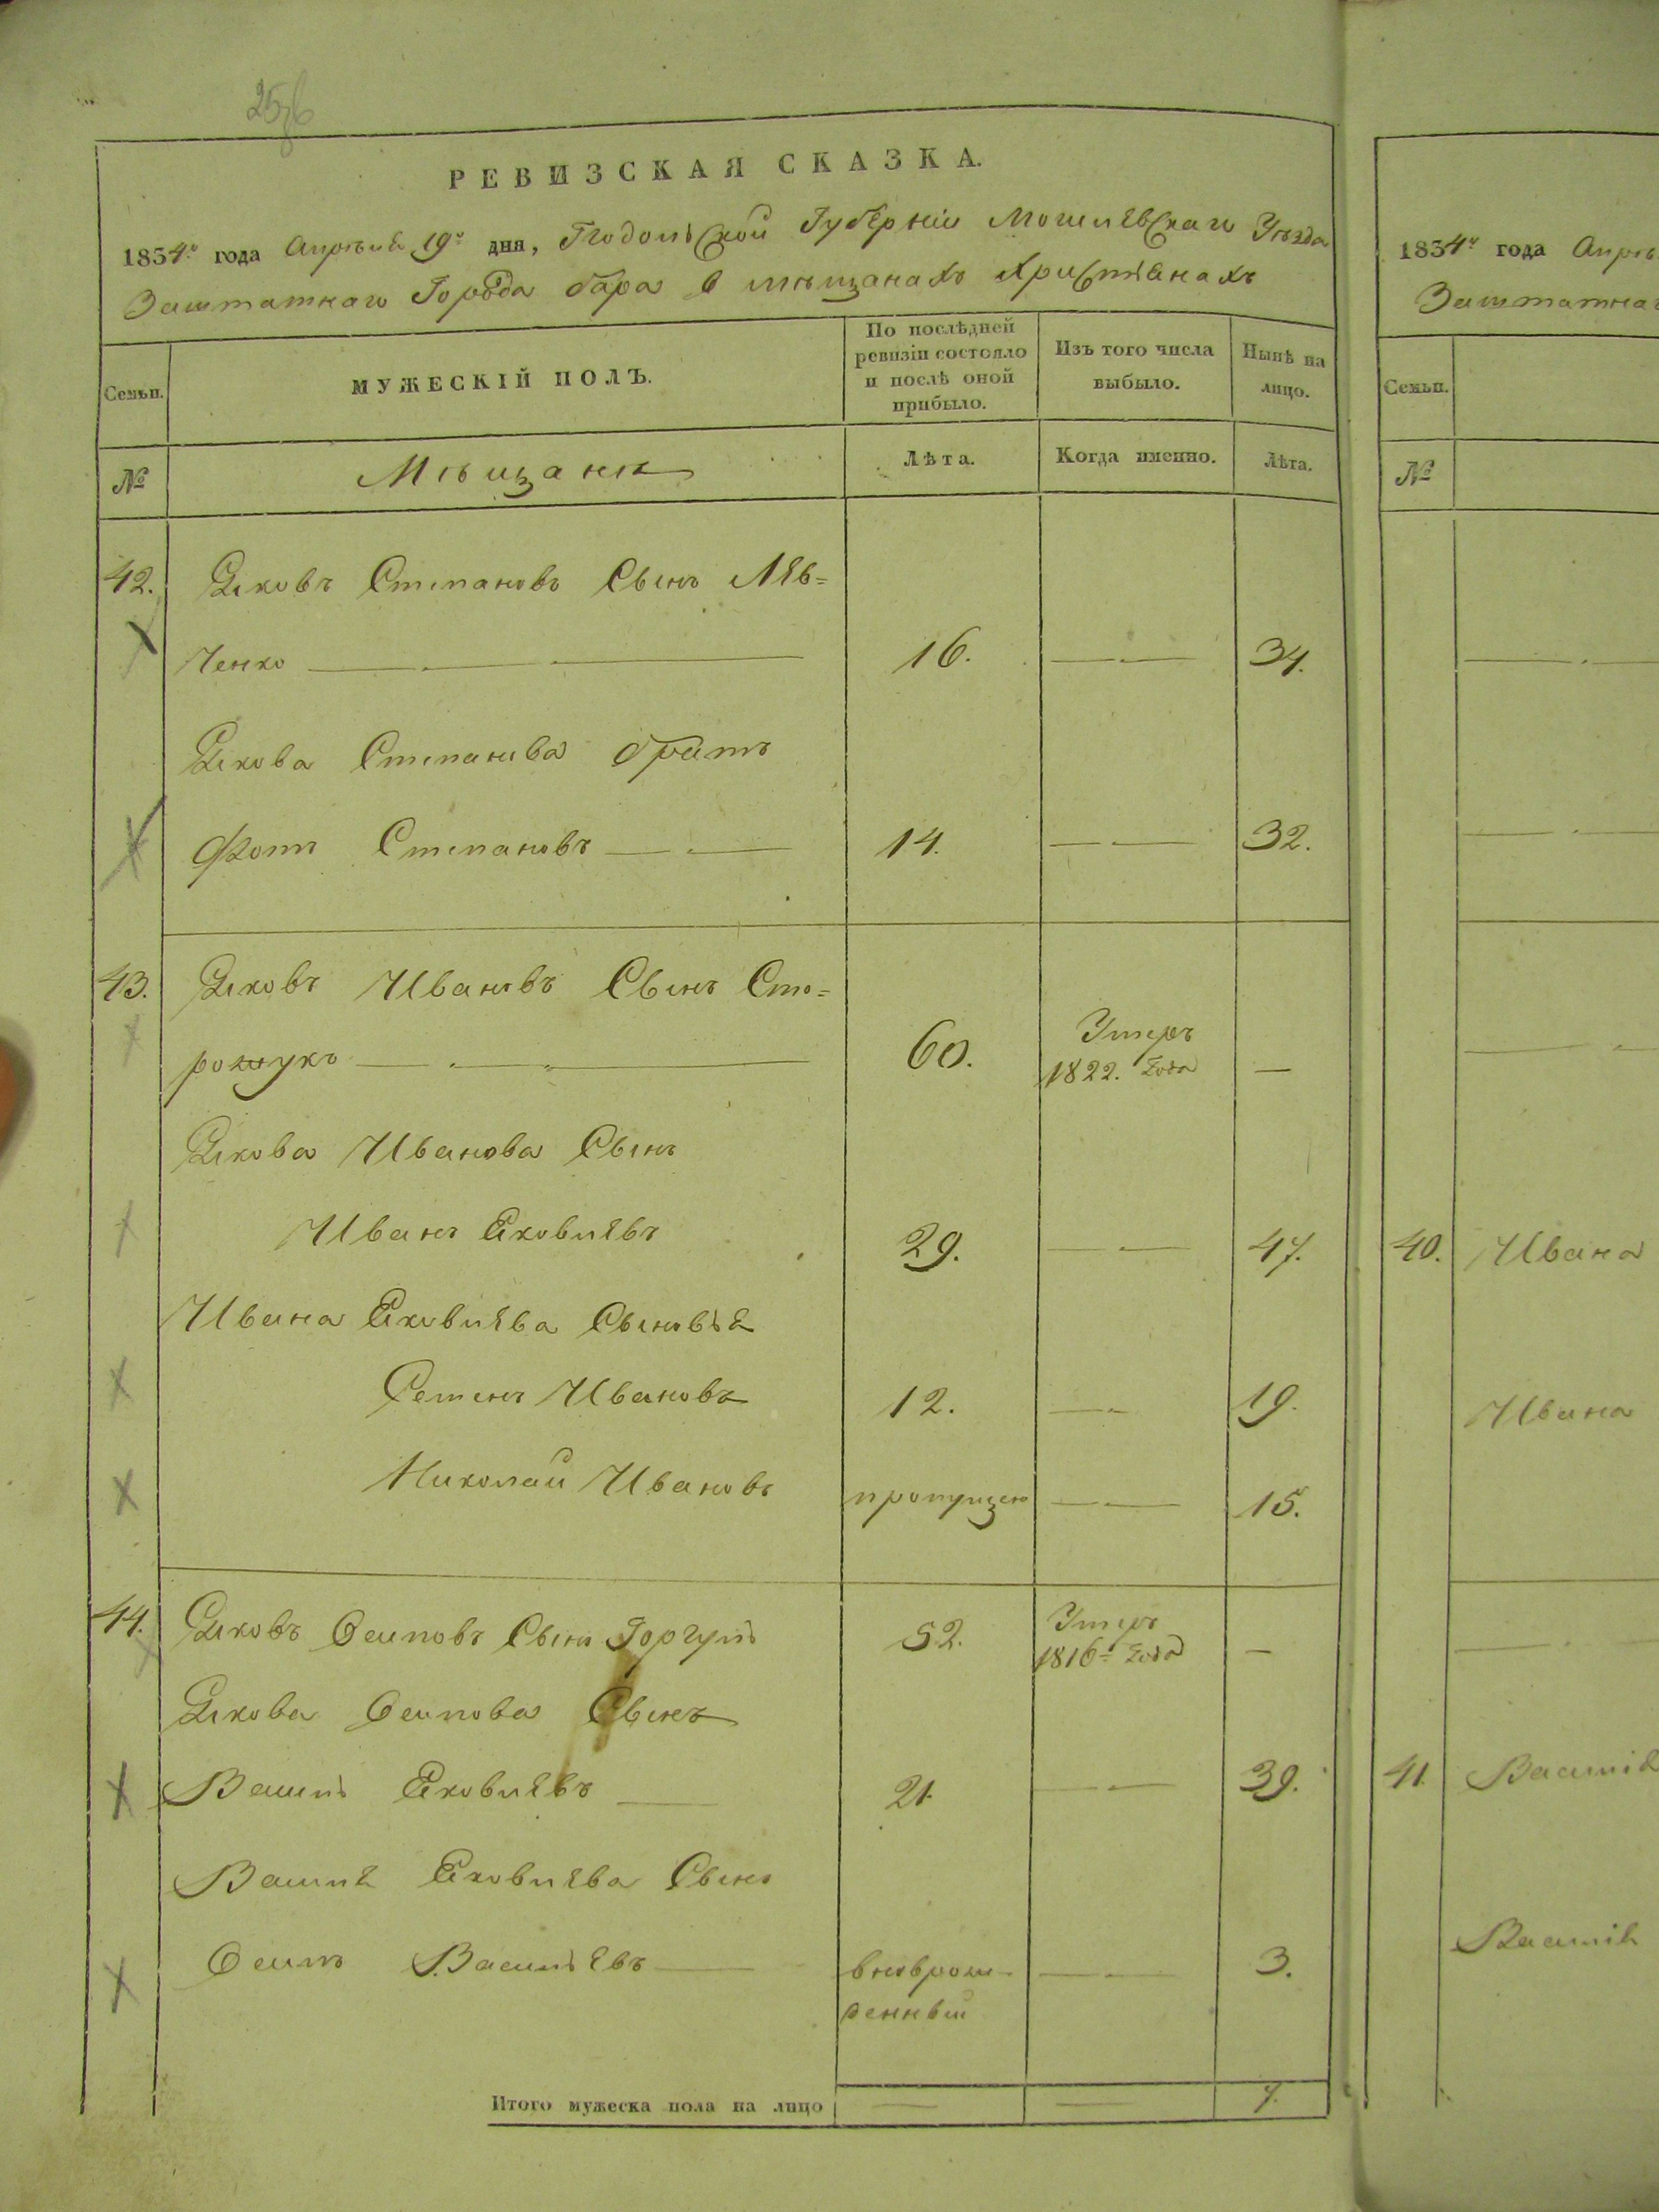 РЕВИЗСКАЯ СКАЗКА.
1834го года Апрѣля 19го дня, Подольской Губерніи Могилевскаго Уѣзда
Заштатнаго Города Бара о мѣщанахъ Христіанахъ
Семьи.
МУЖЕСКІЙ ПОЛЪ.
По послѣдней
ревизіи состояло
и послѣ оной
прибыло.
Изъ того числа
выбыло.
Нынѣ на
лицо.
№
Мѣщане
Лѣта.
Когда именно.
Лѣта.
42. Яковъ Степановъ Сынъ Лев=
ченко 16. 34.
Якова Степанова братъ
Фотъ Степановъ 14. 32.
43. Яковъ Ивановъ Сынъ Сто=
рожукъ 60. Умеръ 1822. года —
Якова Иванова Сынъ
Иванъ Яковлевъ 29. 47.
Ивана Яковлева Сыновья
Семенъ Ивановъ 12. 19.
Николай Ивановъ пропущен 15.
44. Яковъ Осиповъ Сынъ 52. Умеръ 1816 года —
Якова Осипова Сынъ
Василій Яковлевъ 21. 39.
Василія Яковлева Сынъ
Осипъ Васильевъ вновьрож- 3.
денный
Итого мужеска пола на лицо 7.
1834го года Апрѣ
Заштатнаг
Семьи.
№
40. Ивана
Ивана
41. Василія
Василія